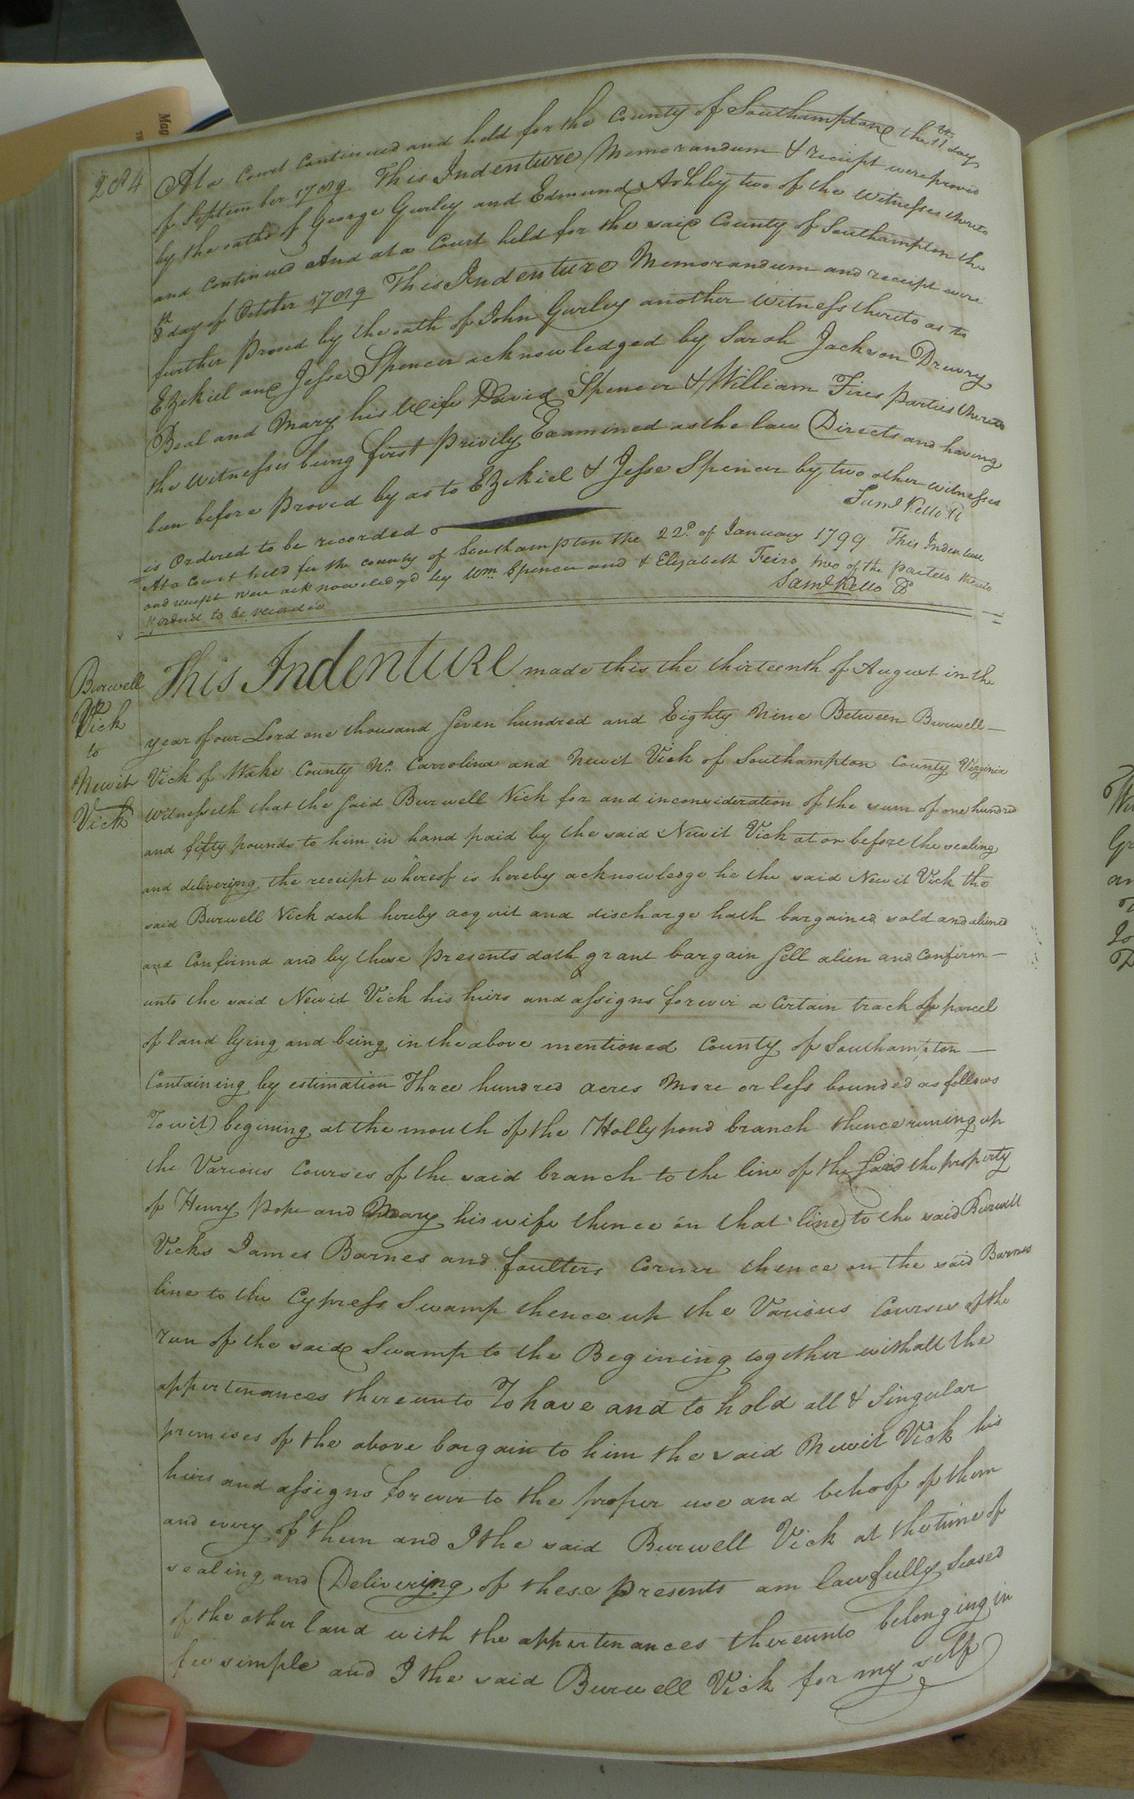 284
At a Court Continued and held for the County of Southampton the 11th day
of September 1789 This Indenture Memorandum & receipt were provd
by the oaths of George Gurley and Edmund Ashley two of the Witnesses thereto
and Continued And at a Court held for the said County of Southampton the
8th day of October 1789 This Indenture Memorandum and receipt were
further Proved by the oath of John Gurley another Witness thereto as to
Ezekiel and Jesse Spencer acknowledged by Sarah Jackson Drewry
Beal and Mary his Wife David Spencer & William Fires parties thereto
the Witnesses being first Privily Examined as the law Directs and having
been before Proved by as to Ezekiel & Jesse Spencer by two other witnesses
is Ordered to be recorded
Saml Kello Cl
At a Court held for the county of Southampton the 22d of January 1799 This Indenture
and receipt were acknowledged by Wm Spencer and & Elizabeth Feirs two of the parties thereto
& ordered to be recorded
Saml Kello Cl
Burwell
Vick
to
Newit
Vick
This Indenture made this the thirteenth of August in the
year of our Lord one thousand seven hundred and Eighty Nine Between Burwell
Vick of Wake County No Carrolina and Newit Vick of Southampton County Virginia
Witnesseth that the said Burwell Vick for and inconsideration of the sum of one hundred
and fifty pounds to him in hand paid by the said Newit Vick at or before the sealing
and delivering the receipt whereof is hereby acknowledge he the said Newit Vick the
said Burwell Vick doth hereby acquit and discharge hath bargained sold and aliened
and Confirmd and by these Presents doth grant bargain sell alien and Confirm
unto the said Newit Vick his hiers and assigns forever a Certain track of parcel
of land lying and being in the above mentioned County of Southampton
Containing by estimation Three hundred acres More or less bounded as follows
Towit) begining at the mouth of the Hollypond branch thence runing up
the Various Courses of the said branch to the line of the said the property
of Henry Pope and Mary his wife thence on that line to the said Burwell
Vicks James Barnes and faulters Corner thence on the said Barnes
line to the Cypress Swamp thence up the Various Courses of the
run of the said Swamp to the Begining together withall the
appertenances thereunto To have and to hold all & Singular
premises of the above bargain to him the said Newit Vick his
hiers and assigns forever to the proper use and behoof of them
and every of them and I the said Burwell Vick at the time of
sealing and Delivering of these presents am lawfully seased
of the other land with the appertenances thereunto belonging in
fee simple and I the said Burwell Vick for my self